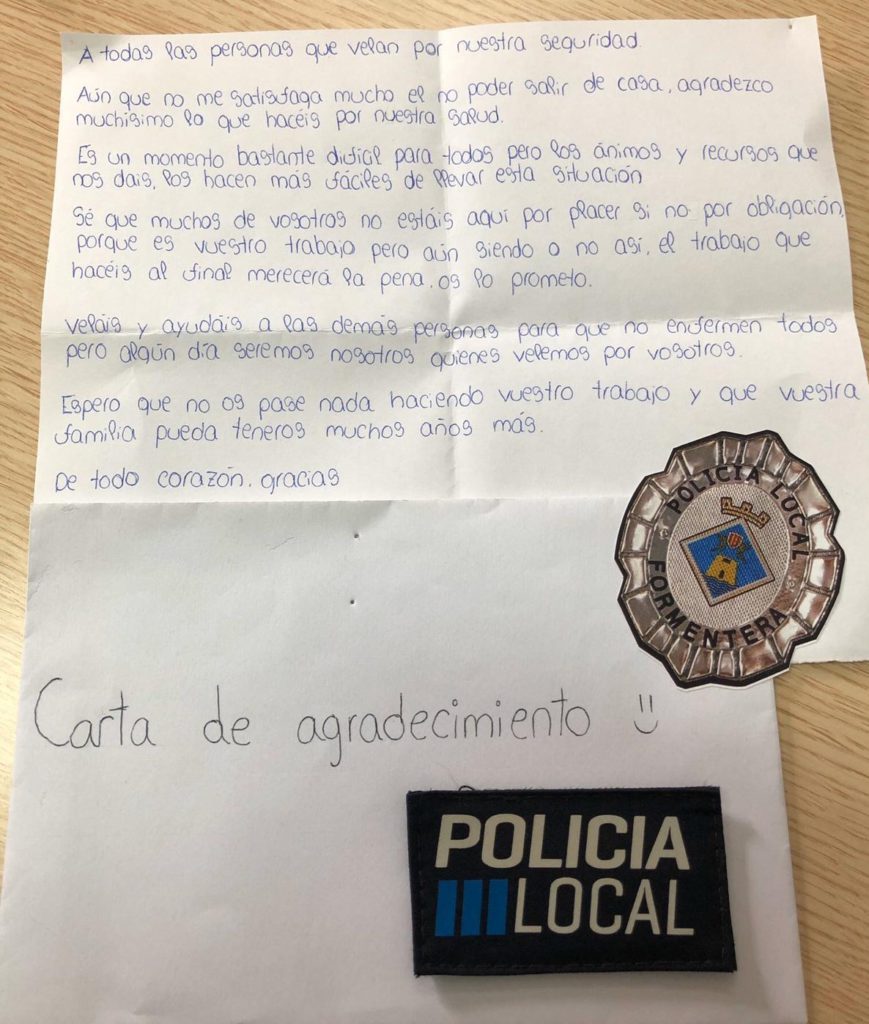 A todas las personas que velan por nuestra seguridad.
Aún que no me satisfaga mucho el no poder salir de casa, agradezco
muchísimo lo que hacéis por nuestra salud.
Es un momento bastante difícil para todos pero los ánimos y recursos que
nos dais, los hacen más fáciles de llevar esta situación
Sé que muchos de vosotros no estáis aquí por placer si no por obligación,
porque es vuestro trabajo pero aún siendo o no así, el trabajo que
hacéis al final merecerá la pena, os lo prometo.
Veláis y ayudáis a las demás personas para que no enfermen todos
pero algún día seremos nosotros quienes velemos por vosotros.
Espero que no os pase nada haciendo vuestro trabajo y que vuestra
familia pueda teneros muchos años más.
De todo corazón, gracias
POLICIA LOCAL
FORMENTERA
Carta de agradecimiento
POLICIA
LOCAL